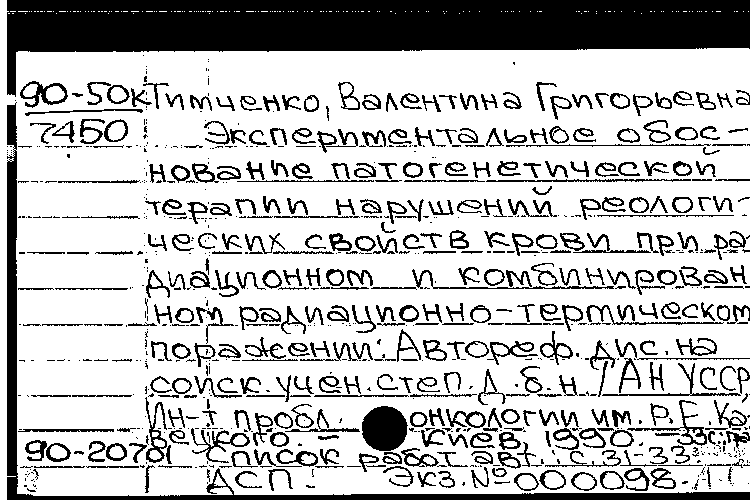 90-50к Тимченко, Валентина Григорьевна
7450 Экспериментальное обос-
нование патогенетической
терапии нарушений реологи-
ческих свойств крови при ра-
диационном и комбинирован
ном радиационно-термическом
поражении: Автореф. дис. на
соиск. учен. степ. д. б. н. / АН УССР
Ин-т пробл. онкологии им. Р. Е. Ка
вецкого. - Киев, 1990. - 33с.
90-20701 Список работ авт.: с. 31-33.
ДСП. Экз. № 000098.